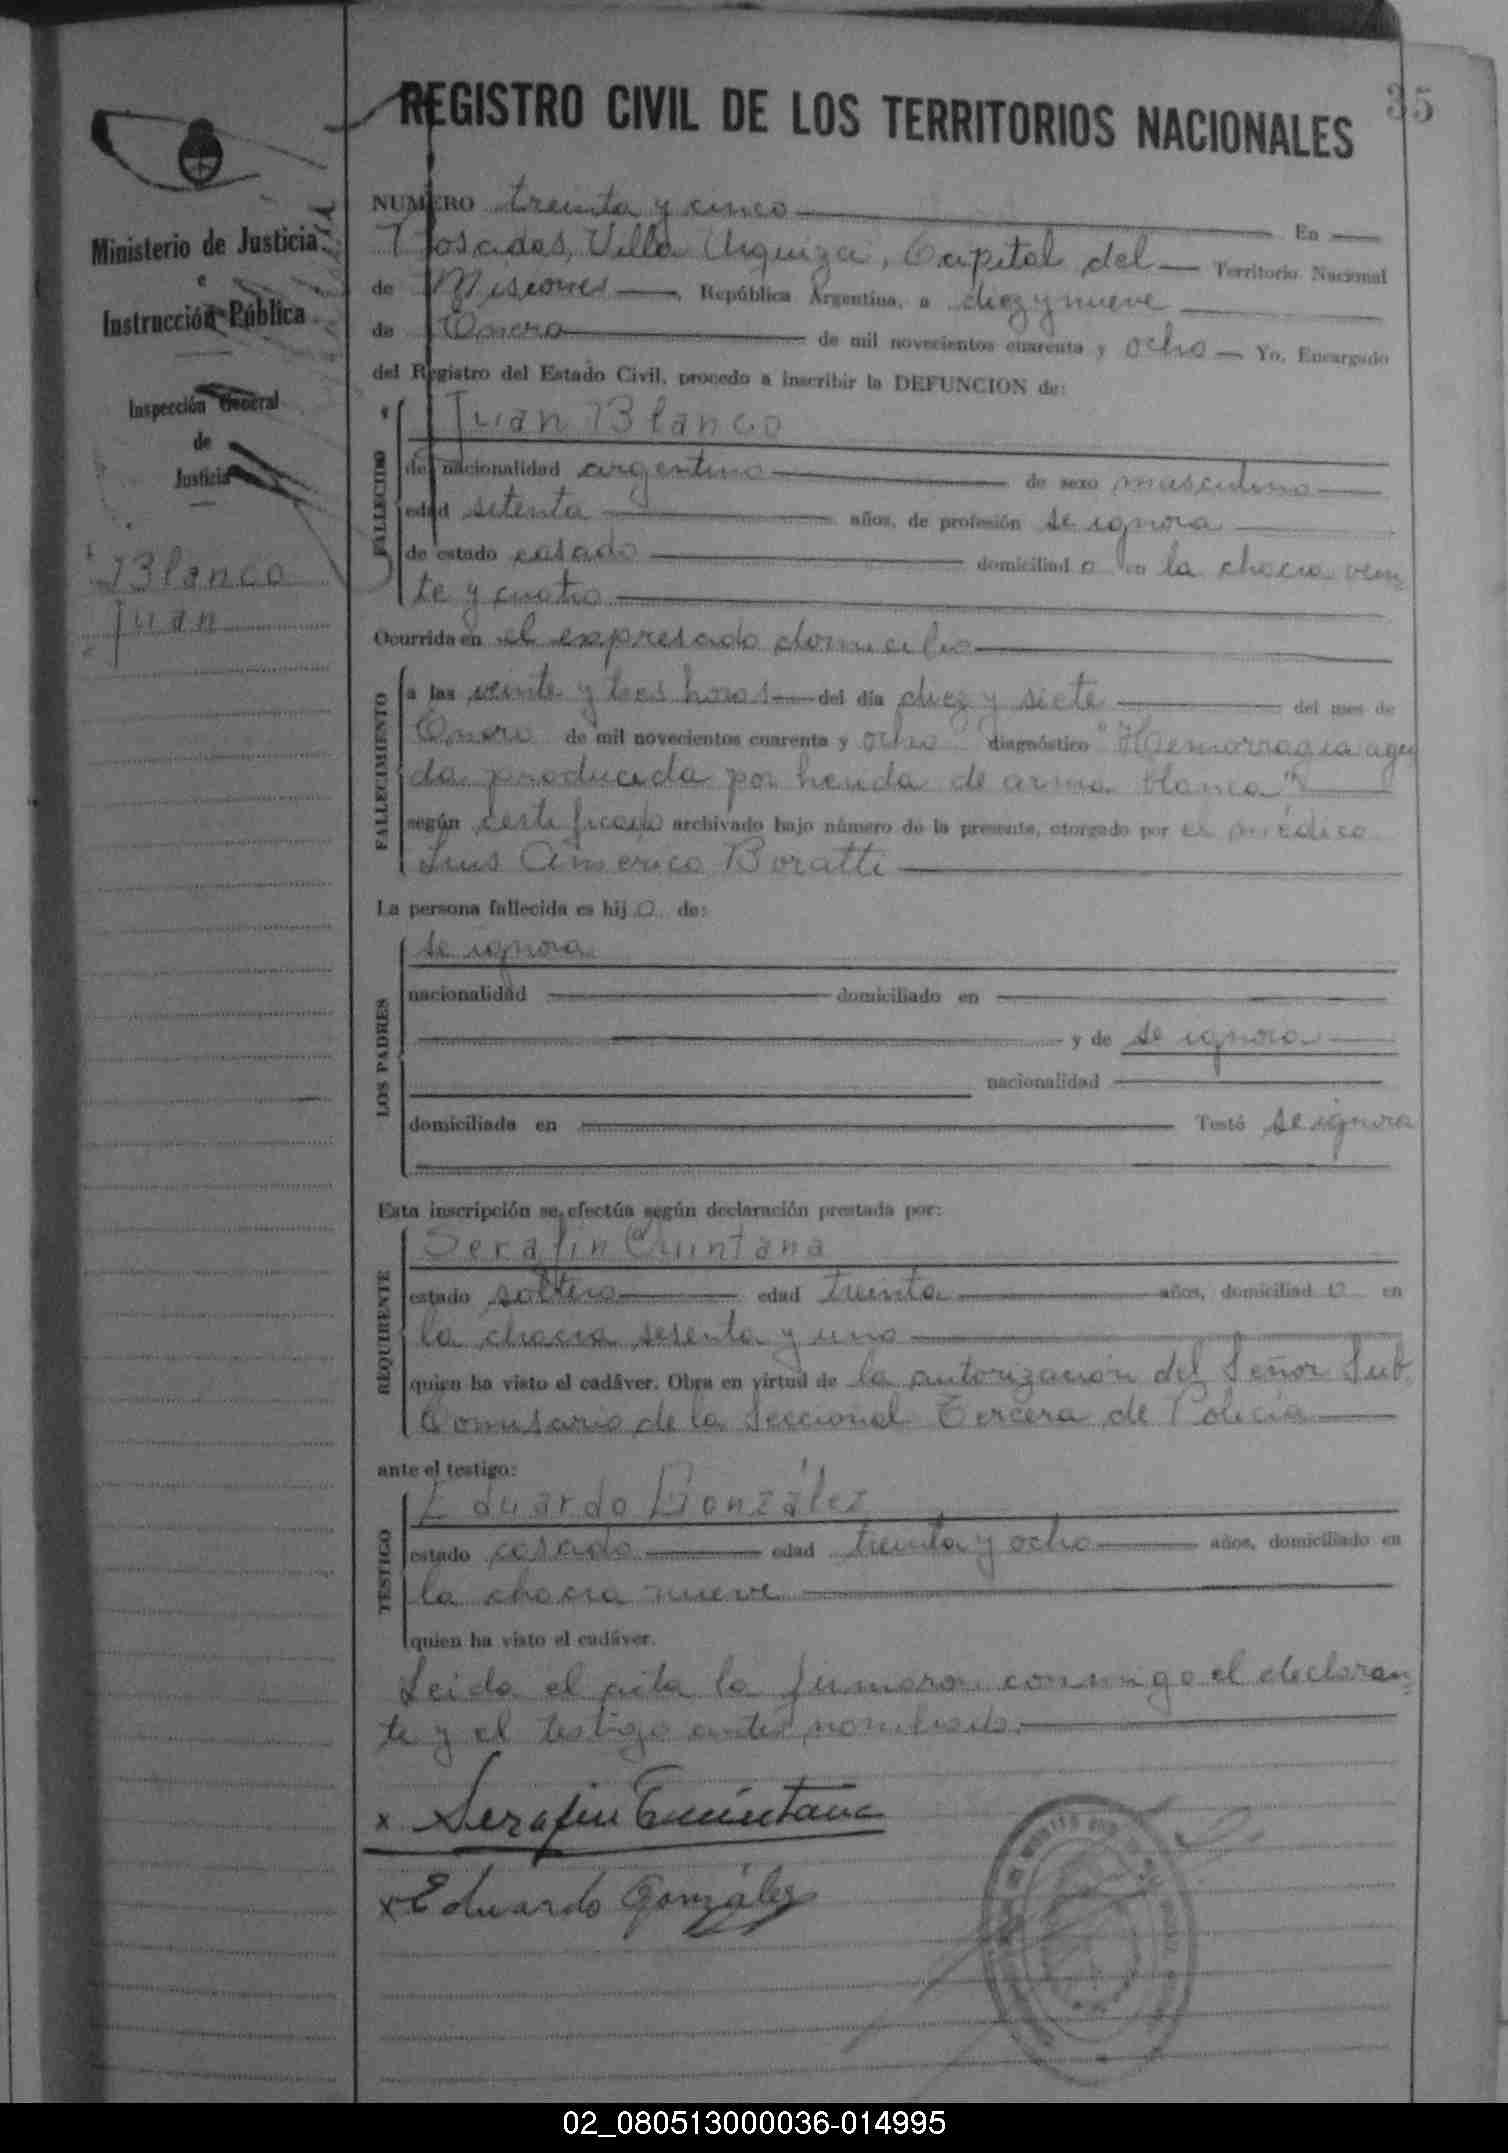 35
REGISTRO CIVIL DE LOS TERRITORIOS NACIONALES
Ministerio de Justicia
e
Instrucción Pública
Inspección General
de
Justicia
Blanco
Juan
NUMERO treinta y cinco En
Posadas, Villa Urquiza, Capital del Territorio Nacional
de Misiones, República Argentina, a diez y nueve
de Enero de mil novecientos cuarenta y ocho Yo, Encargado
del Registro del Estado Civil, procedo a inscribir la DEFUNCION de:
FALLECIDO
Juan Blanco
de nacionalidad argentino de sexo masculino
edad setenta años, de profesión se ignora
de estado casado domiciliad o en la chacra vein
te y cuatro
Ocurrida en el expresado domicilio
FALLECIMIENTO
a las veinte y tres horas del día diez y siete del mes de
Enero de mil novecientos cuarenta y ocho diagnóstico "Hemorragia agu
da producida por herida de arma blanca"
según certificado archivado bajo número de la presente, otorgado por el médico
Luis Américo Boratti
La persona fallecida es hij o de:
LOS PADRES
se ignora
nacionalidad domiciliado en
y de se ignora
nacionalidad
domiciliada en Testó se ignora
Esta inscripción se efectúa según declaración prestada por:
REQUIRENTE
Serafin Quintana
estado soltero edad treinta años, domiciliad o en
la chacra sesenta y uno
quien ha visto el cadáver. Obra en virtud de la autorización del Señor Sub
Comisario de la Seccional Tercera de Policía
ante el testigo:
TESTIGO
Eduardo González
estado casado edad treinta y ocho años, domiciliado en
la chacra nueve
quien ha visto el cadáver.
Leida el acta la firmaron conmigo el declaran
te y el testigo antes nombrado.
x Serafin Quintana
x Eduardo González
02_080513000036-014995